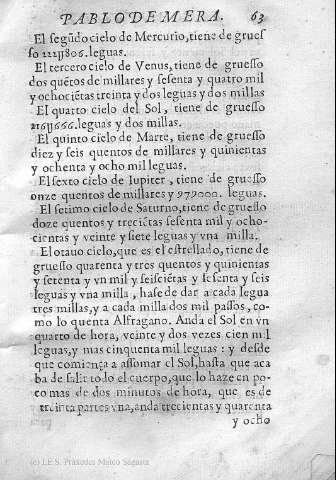 PABLO DE MERA. 63
El segūdo cielo de Mercurio, tiene de gruesſ
ſo 222ɥ806. leguas.
El tercero cielo de Venus, tiene de grueſſo
dos quētos de millares y ſeſenta y quatro mil
y ochociētas treinta y dos leguas y dos millas
El quarto cielo del Sol, tiene de grueſſo
216ɥ666. leguas y dos millas.
El quinto cielo de Marte, tiene de grueſſo
diez y ſeis quentos de millares y quinientas
y ochenta y ocho mil leguas.
El ſexto cielo de Iupiter, tiene de grueſſo
onze quentos de millares y 979000. leguas.
El ſetimo cielo de Saturno, tiene de grueſſo
doze quentos y treciētas ſeſenta mil y ocho-
cientas y veinte y ſiete leguas y vna milla.
El otauo cielo, que es el eſtrellado, tiene de
grueſſo quarenta y tres quentos y quinientas
y ſetenta y vn mil y ſeiſciētas y ſeſenta y ſeis
leguas y vna milla, haſe de dar a cada legua
tres millas, y a cada milla dos mil paſſos, co-
mo lo quenta Alfragano. Anda el Sol en vn
quarto de hora, veinte y dos vezes cien mil
leguas, y mas cinquenta mil leguas: y desde
que comiença a aſſomar el Sol, haſta que aca
ba de ſalir todo el cuerpo, que lo haze en po-
co mas de dos minutos de hora, que es de
treinta partes vna, anda trecientas y quarenta
y ocho
(c) I.E.S. Práxedes Mateo Sagasta